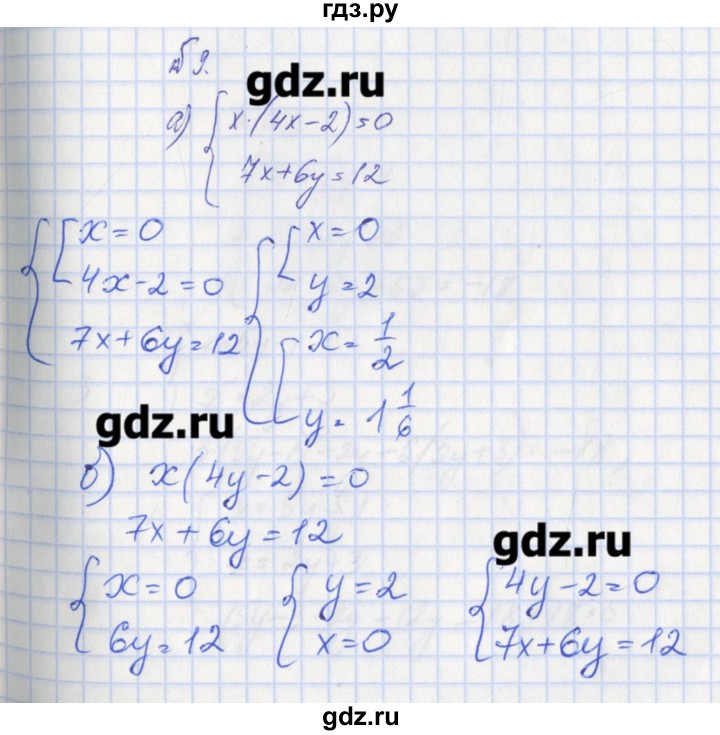 гдз.ру
№ 9.
gdz.ru
а) { x·(4x-2)=0
7x+6y=12
{ [ x=0
4x-2=0
7x+6y=12
{ [ x=0
y=2
[ x=1/2
y=1 1/6
gdz.ru
б) x(4y-2)=0
7x+6y=12
gdz.ru
{ x=0
6y=12
{ y=2
x=0
{ 4y-2=0
7x+6y=12
gdz.ru